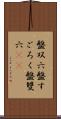 盤双六盤す
ごろく盤雙
六